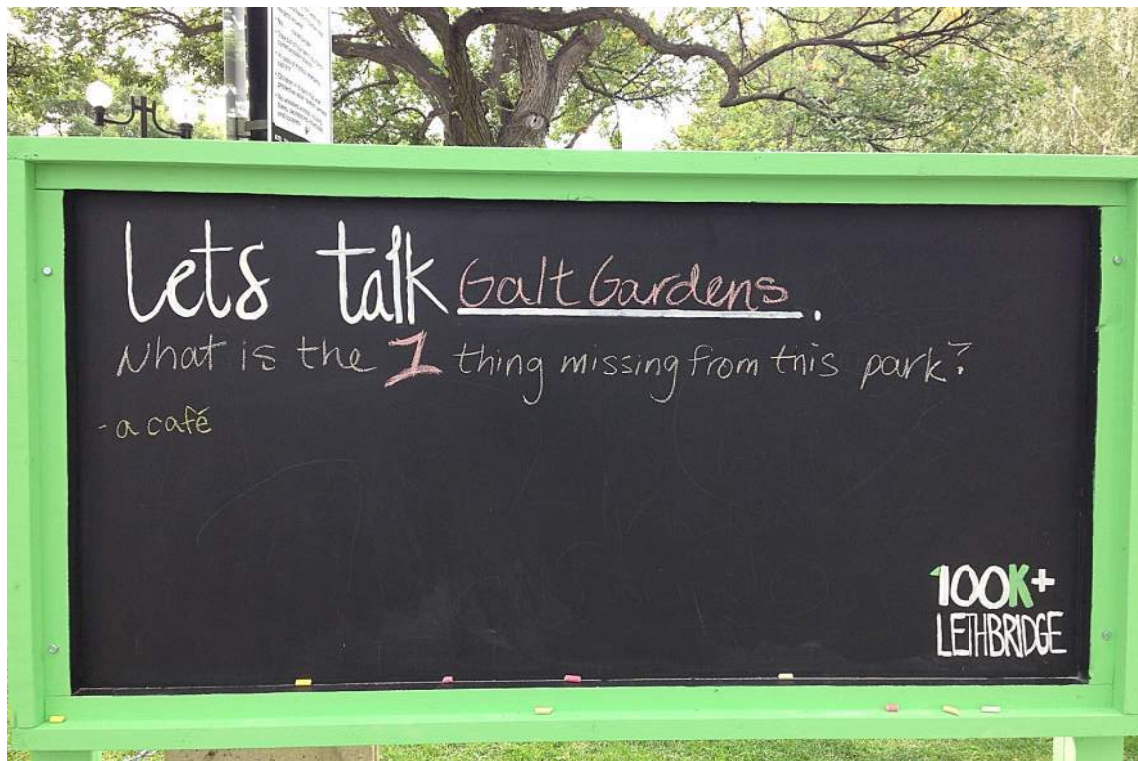 Lets talk Galt Gardens.
What is the 1 thing missing from this park?
- a café
100K+
LETHBRIDGE